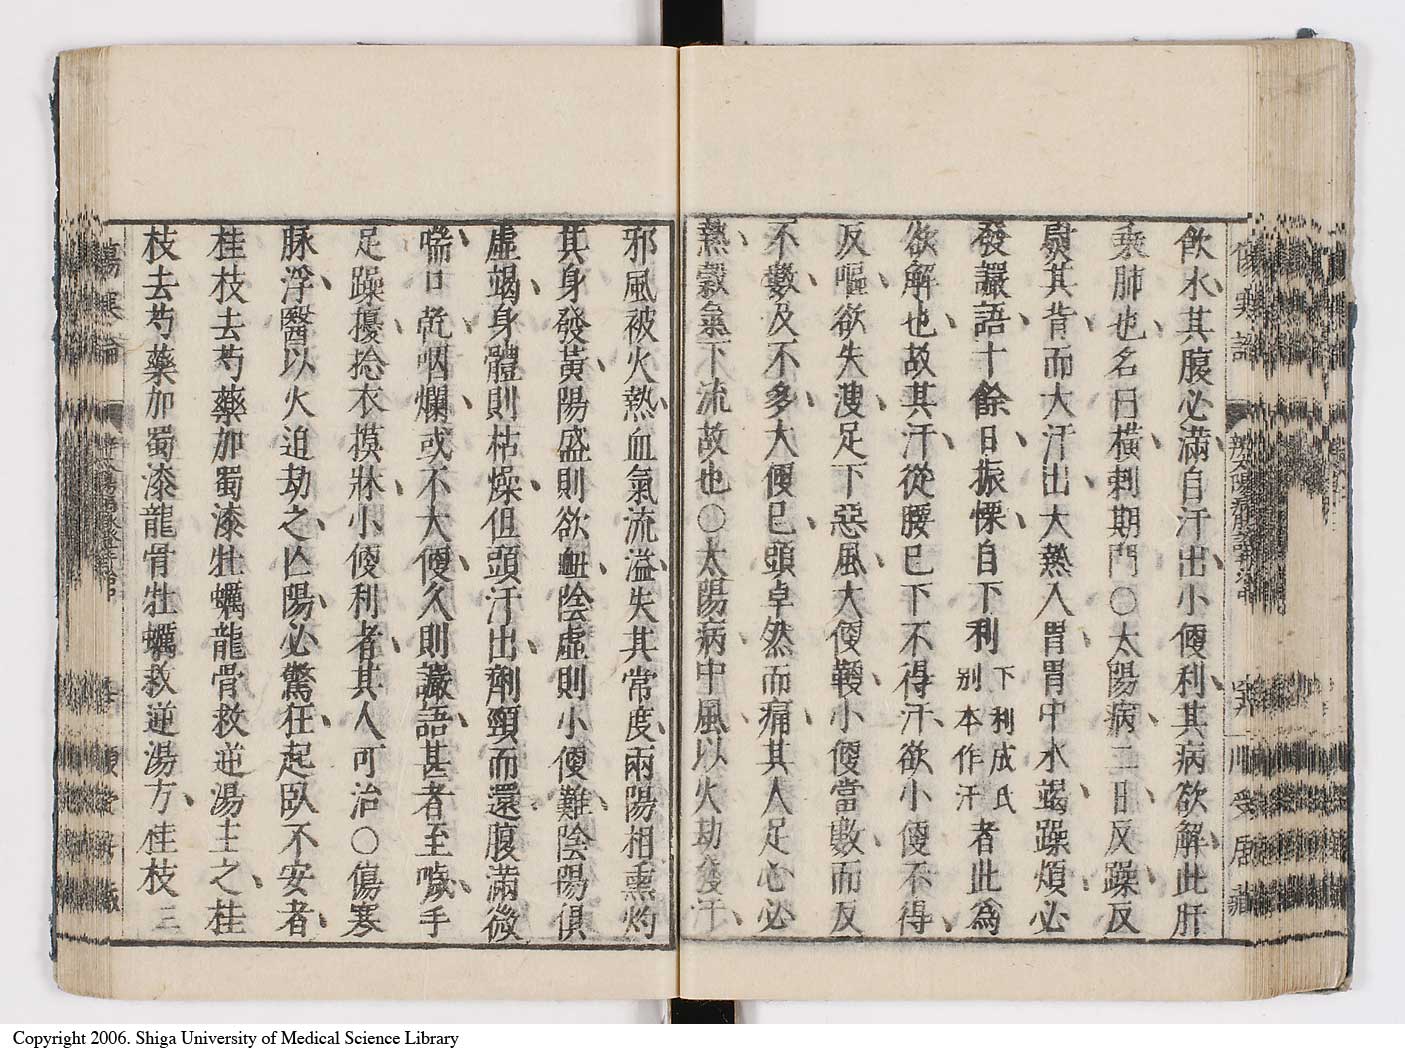 飲水其腹必滿自汗出小便利其病欲解此肝
乘肺也名曰橫刺期門〇太陽病二日反躁反
熨其背而大汗出大熱入胃胃中水竭躁煩必
發讝語十餘日振慄自下利下利成氏別本作汗者此爲
欲解也故其汗從腰已下不得汗欲小便不得
反嘔欲失溲足下惡風大便鞕小便當數而反
不數及不多大便已頭卓然而痛其人足心必
熱穀氣下流故也〇太陽病中風以火劫發汗
邪風被火熱血氣流溢失其常度兩陽相熏灼
其身發黃陽盛則欲衄陰虛則小便難陰陽俱
虛竭身體則枯燥但頭汗出劑頸而還腹滿微
喘口乾咽爛或不大便久則讝語甚者至噦手
足躁擾捻衣摸牀小便利者其人可治〇傷寒
脉浮醫以火迫劫之亡陽必驚狂起臥不安者
桂枝去芍藥加蜀漆牡蠣龍骨救逆湯主之桂
枝去芍藥加蜀漆龍骨牡蠣救逆湯方桂枝三
傷寒論
Copyright 2006. Shiga University of Medical Science Library